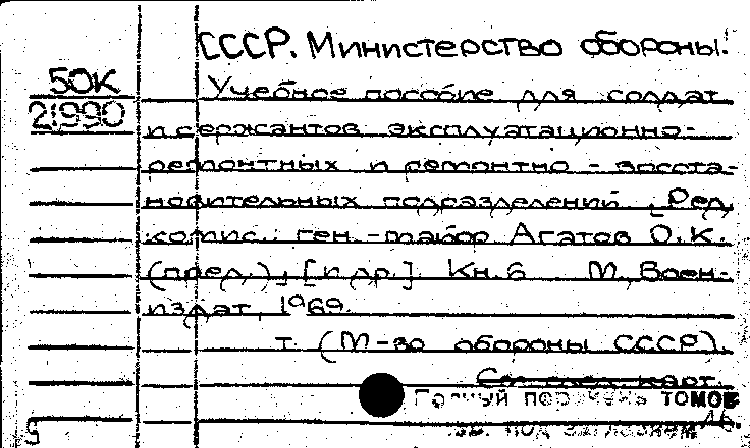 СССР. Министерство обороны.
50К
21990
Учебное пособие для солдат
и сержантов эксплуатационно-
ремонтных и ремонтно-восста-
новительных подразделений. [Ред.
комис.: ген.-майор Агатов О.К.
(пред.), [и др.] Кн. 6 М., Воен-
издат, 1969.
т. (М-во обороны СССР).
См. след. карт.
Полный перечень томов
см. под заглавием